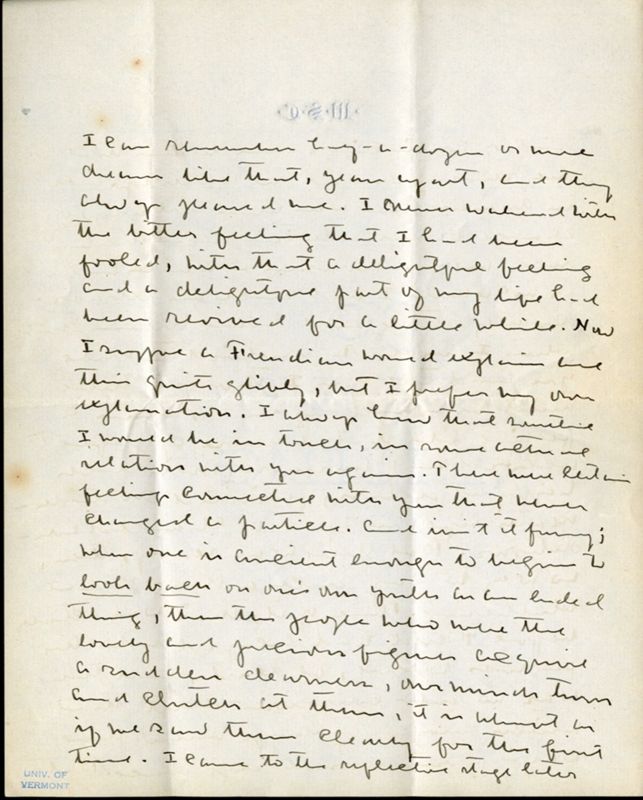 I can remember half-a-dozen or more
dreams like that, years apart, and they
always pleased me. I never wakened with
the bitter feeling that I had been
fooled, with that a delightful feeling
and a delightful part of my life had
been revived for a little while. Now
I suppose a Freudian would explain all
this quite glibly, but I prefer my own
explanation. I always knew that sometime
I would be in touch, in some actual
relation with you again. There were certain
feelings connected with you that never
changed a particle. And isn't it funny;
when one is ancient enough to begin to
look back on one's own youth as an ended
thing, then the people who were the
lovely and precious figures acquire
a sudden clearness, our minds turn
and clutch at them, it is almost as
if we saw them clearly for the first
time. I came to the reflective stage later
UNIV. OF
VERMONT